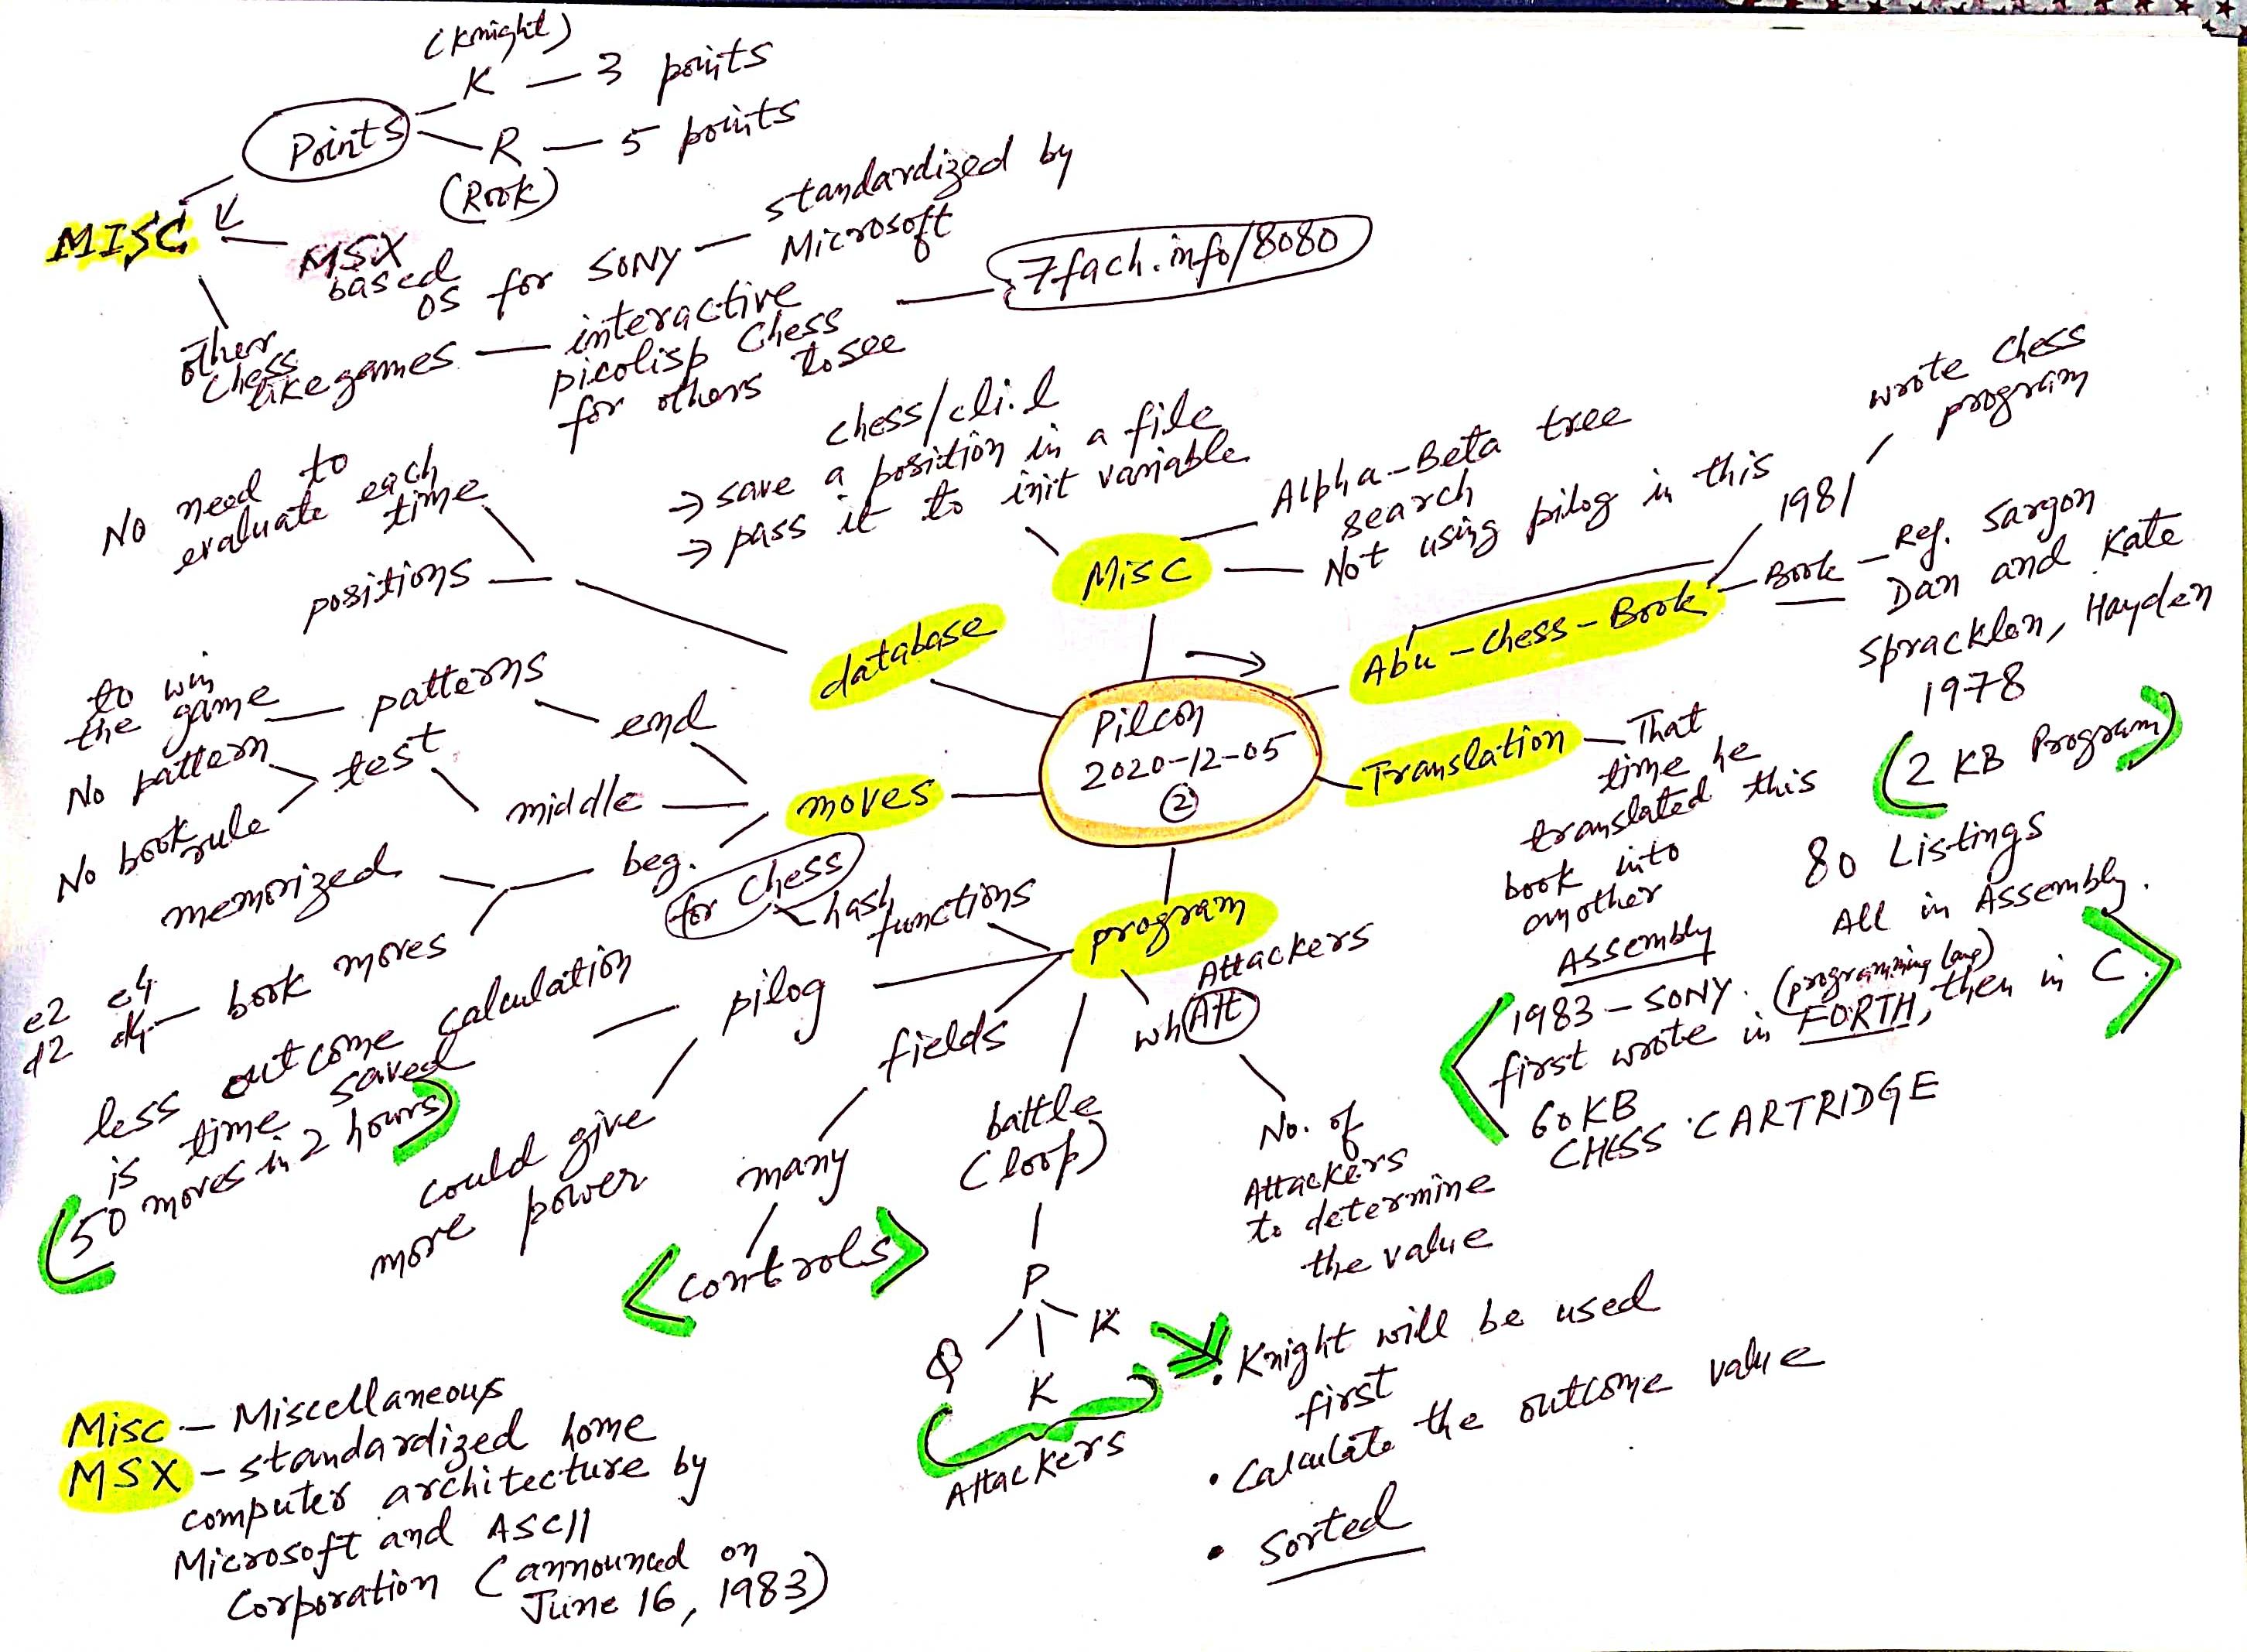 (Knight)
K — 3 points
Points
R — 5 points
(Rook)
MISC
MSX
based
OS for SONY — standardized by
Microsoft
other
Chess
like games — interactive
picolisp Chess
for others to see
7fach.info/8080
No need to
evaluate each
time
positions
database
chess/cli.l
→ save a position in a file
→ pass it to init variable
Misc
Alpha-Beta tree
search
Not using pilog in this
wrote Chess
program
1981
Abu-Chess-Book
Book — Ref. Sargon
Dan and Kate
Spracklen, Hayden
1978
(2 KB Program)
80 Listings
All in Assembly.
Pilcon
2020-12-05
②
Translation
That
time he
translated this
book into
another
Assembly
1983 – SONY. (programming lang)
first wrote in FORTH, then in C.
60KB
CHESS CARTRIDGE
to win
the game — patterns
end
No pattern
test
No book rule
middle
moves
memorized
beg.
e2 e4
d2 d4 — book moves
for Chess
hash
functions
program
less outcome calculation
is time saved
(50 moves in 2 hours)
pilog
could give
more power
fields
many
<controls>
battle
(loop)
P
Q K K
Attackers
Attackers
whAtt
No. of
Attackers
to determine
the value
• Knight will be used
first
• Calculate the outcome value
• Sorted
Misc – Miscellaneous
MSX – standardized home
computer architecture by
Microsoft and ASCII
Corporation (announced on
June 16, 1983)